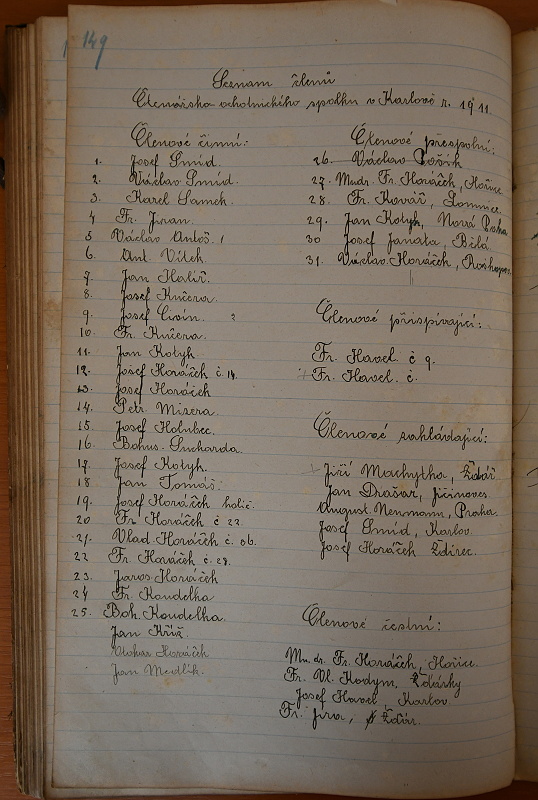 149
Seznam členů
Čtenářsko ochotnického spolku v Karlově r. 1911.
Členové činní:
1. Josef Šmíd.
2. Václav Šmíd.
3. Karel Samek.
4 Fr. Jiran.
5 Václav Antoš.
6. Ant. Vítek.
7. Jan Halíř.
8. Josef Kučera.
9. Josef Civín. 2
10. Fr. Kučera.
11. Jan Kotyk.
12. Josef Horáček č. 14.
13. Josef Horáček
14. Petr Mizera.
15. Josef Holubec.
16. Bohus. Sucharda.
17. Josef Kotyk.
18 Jan Tomáš.
19. Josef Horáček holič.
20 Fr. Horáček č 22.
21. Vlad. Horáček č. 36.
22 Fr. Horáček č. 28.
23. Jaros. Horáček
24 Fr. Koudelka
25. Boh. Koudelka.
Jan Kříž
Otokar Horáček
Jan Medlík.
Členové přespolní:
26. Václav
27. Mudr. Fr. Horáček, Hořice.
28. Fr. Kovář, Lomnice.
29. Jan Kotyk, Nová Paka
30 Josef Janata, Bílá
31. Václav Horáček,
Členové přispívající:
Fr. Havel. č 9.
Fr. Havel. č.
Členové zakládající:
Jiří Machytka, Ždár
Jan Dražar, Jičíněves.
August. Neumann, Praha.
Josef Šmíd, Karlov.
Josef Horáček Ždírec.
Členové čestní:
Mu. dr. Fr. Horáček, Hořice.
Fr. Vl. Kodym, Žďárky
Josef Havel, Karlov
Fr. Jíra, Ždár.